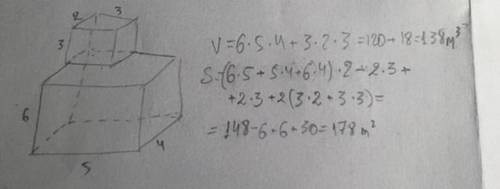 2 3
3
6
5
4
V=6·5·4+3·2·3=120+18=138m³
S=(6·5+5·4+6·4)·2-2·3+
+2·3+2(3·2+3·3)=
=148-6+6+30=178m²